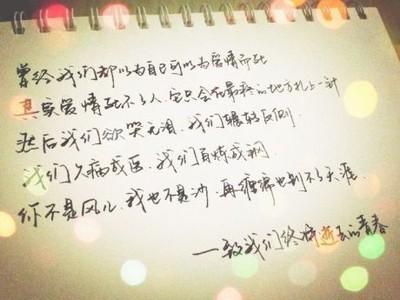 曾经我们都以为自己可以为爱情而死
其实爱情死不了人,它只会在最疼的地方扎上一针
然后我们欲哭无泪,我们辗转反侧
我们久病成医,我们百炼成钢
你不是风儿,我也不是沙,再缠绵也到不了天涯
——致我们终将逝去的青春